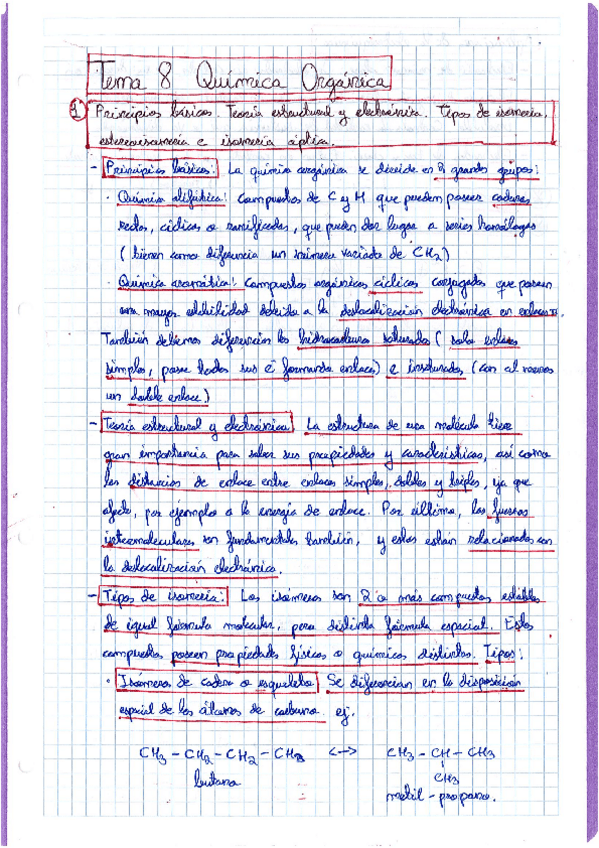 Tema 8 Química Orgánica
1 Principios básicos. Teoría estructural y electrónica. Tipos de isomería,
estereoisomería e isomería óptica.
- Principios básicos: La química orgánica se divide en 2 grandes grupos:
· Química alifática: Compuestos de C y H que pueden poseer cadenas
rectas, cíclicas o ramificadas, que pueden dar lugar a series homólogas
(tienen como diferencia un número variado de CH2)
· Química aromática: Compuestos orgánicos cíclicos conjugados que poseen
una mayor estabilidad debido a la deslocalización electrónica en enlaces π.
También debemos diferenciar los hidrocarburos saturados (solo enlaces
simples, posee todos sus e⁻ formando enlaces) e insaturados (con al menos
un doble enlace)
- Teoría estructural y electrónica: La estructura de una molécula tiene
gran importancia para saber sus propiedades y características, así como
las distancias de enlace entre enlaces simples, dobles y triples, ya que
afecta, por ejemplo a la energía de enlace. Por último, las fuerzas
intermoleculares son fundamentales también, y estas están relacionadas con
la deslocalización electrónica.
- Tipos de isomería: Los isómeros son 2 o más compuestos estables
de igual fórmula molecular, pero distinta fórmula espacial. Estos
compuestos poseen propiedades físicas o químicas distintas. Tipos:
· Isómeros de cadena o esqueleto: Se diferencian en la disposición
espacial de los átomos de carbono. ej.
CH3 - CH2 - CH2 - CH3 <-> CH3 - CH - CH3
CH3
butano metil - propano.